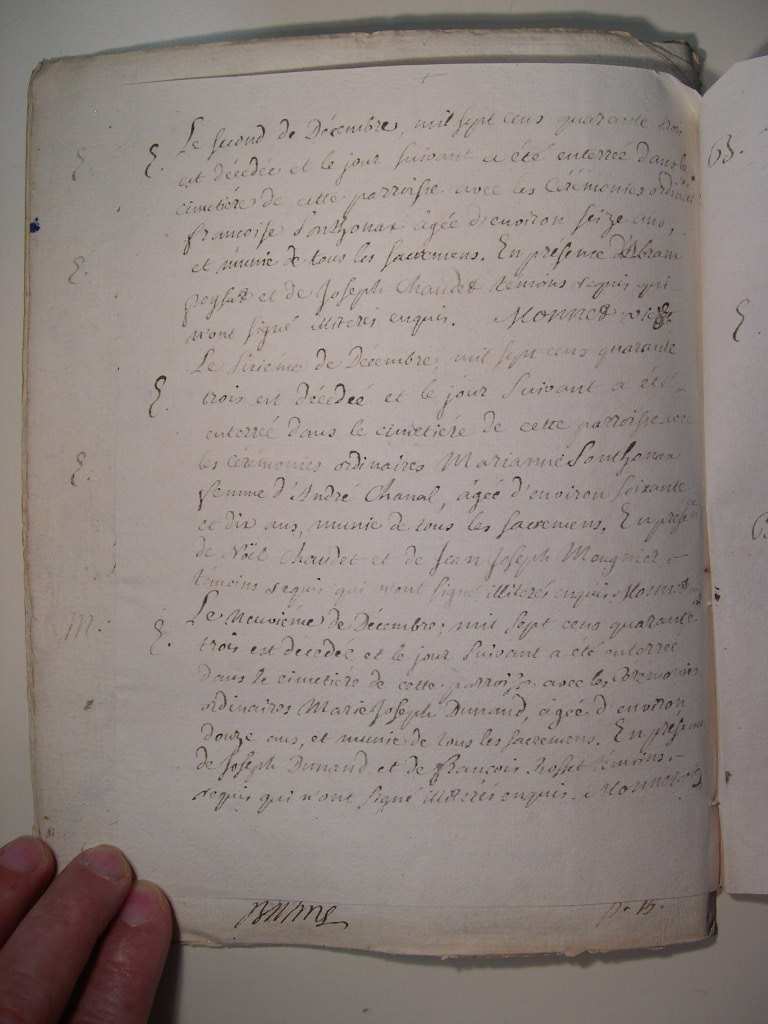 Le second de Décembre, mil sept cens quarante trois
est décédée et le jour suivant a été enterrée dans le
cimetiére de cette parroisse avec les Cérémonies ordinaires
françoise Sonthonax âgée d'environ seize ans,
et munie de tous les sacremens. En présence d'Abram
et de Joseph Chaudet témoins requis qui
n'ont signé illiterés enquis. Monnet
E.
Le sixiéme de Décembre, mil sept cens quarante
trois est décedeé et le jour suivant a été
enterreé dans le cimetiére de cette parroisse avec
les cérémonies ordinaires Marianne Sonthonax
femme d'André Chanal, âgée d'environ soixante
et dix ans, munie de tous les sacremens. En presence
de Noël Chaudet et de Jean Joseph Mougnier
témoins requis qui n'ont signé illiterés enquis. Monnet
E.
Le neuviéme de Décembre; mil sept cens quarante
trois est decedée et le jour suivant a été enterreé
dans le cimetiére de cette parroisse avec les Ceremonies
ordinaires Marie Joseph Dunand, âgée d'environ
douze ans, et munie de tous les sacremens. En présence
de Joseph Dunand et de françois Rosset témoins
requis qui n'ont signé illiterés enquis. Monnet
E.
E.
E.
E.
M.